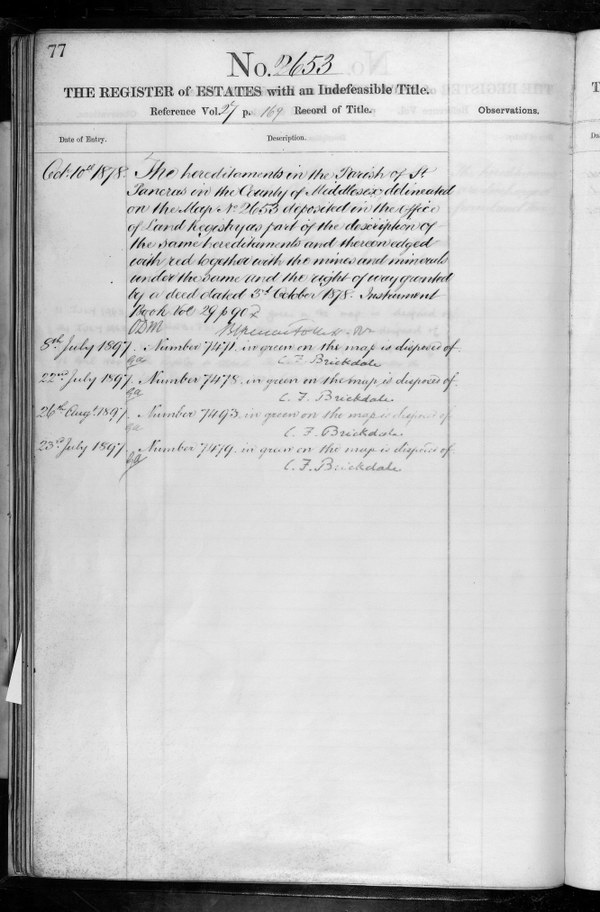 77
No. 2653
THE REGISTER of ESTATES with an Indefeasible Title.
Reference Vol. 27 p. 169 Record of Title.
Observations.
Date of Entry.
Description.
Oct. 10th 1878. The hereditaments in the Parish of St
Pancras in the County of Middlesex delineated
on the Map No 2653 deposited in the Office
of Land Registry as part of the description of
the same hereditaments and thereon edged
with red together with the mines and minerals
under the same and the right of way granted
by a deed dated 3rd October 1878. Instrument
Book Vol 29 p 90
8th July 1897. Number 7471, in green on the map is disposed of.
C. F. Brickdale
22nd July 1897. Number 7478, in green on the map, is disposed of.
C. F. Brickdale
26th Augt. 1897. Number 7493, in green on the map is disposed of
C. F. Brickdale
23rd July 1897. Number 7479, in green on the map is disposed of
C. F. Brickdale